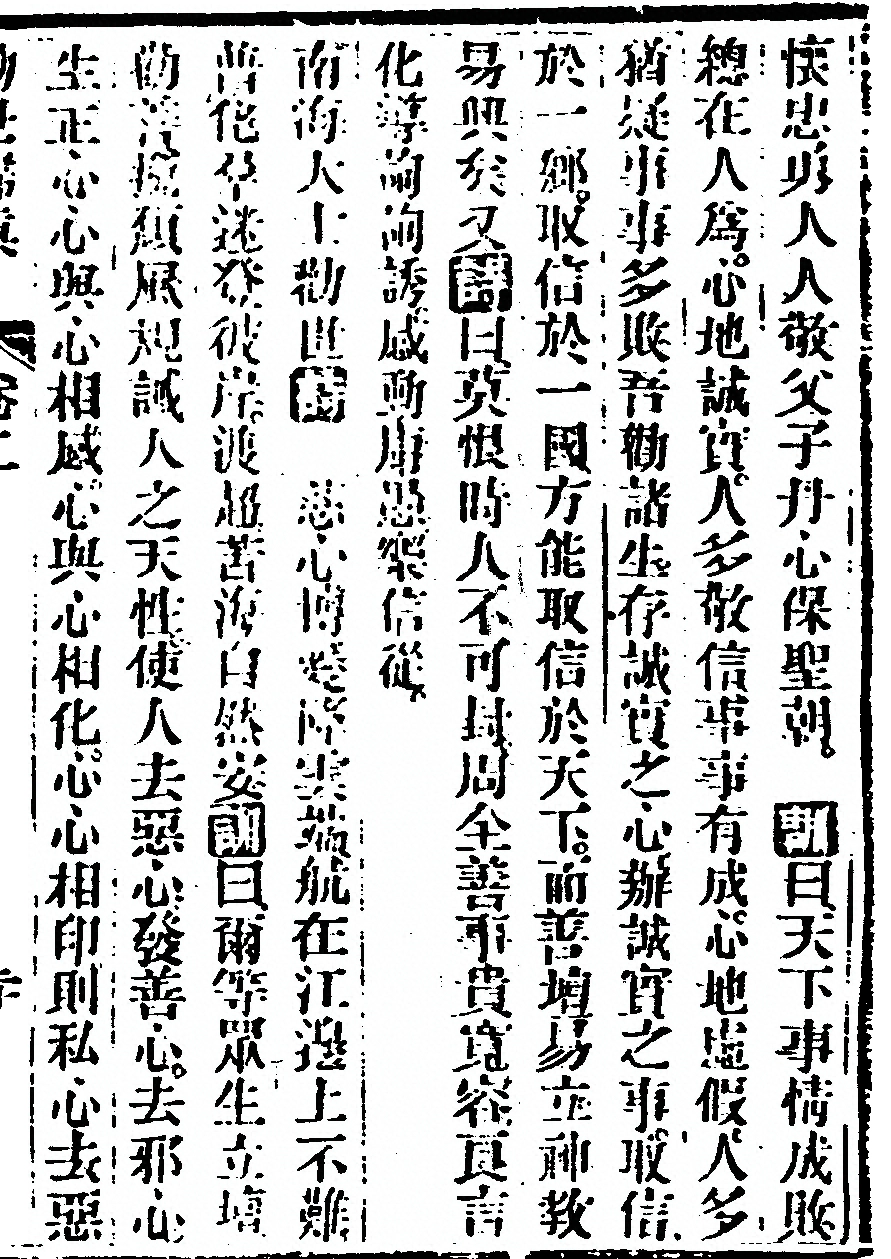 懷忠與人人敬父子丹心保聖朝。　訓曰天下事情成敗
總在人為。心地誠實。人多敬信事事有成。心地虛假人多
猶疑事事多敗吾勸諸生存誠實之心辦誠實之事。取信
於一鄉。取信於一國方能取信於天下。而善壇易立神教
易興矣又詩曰莫恨時人不可封周全善事貴寬容良言
化導諭誘感動庸愚樂信從
南海大士勸世詩　慈心博愛降雲端航在江邊上不難
普化卒迷登彼岸。渡超苦海自然安訓曰爾等眾生立壇
勸善挽頹風規誡人之天性使人去惡心發善心。去邪心
生正心心與心相感。心與心相化。心心相印則私心去惡
卷二